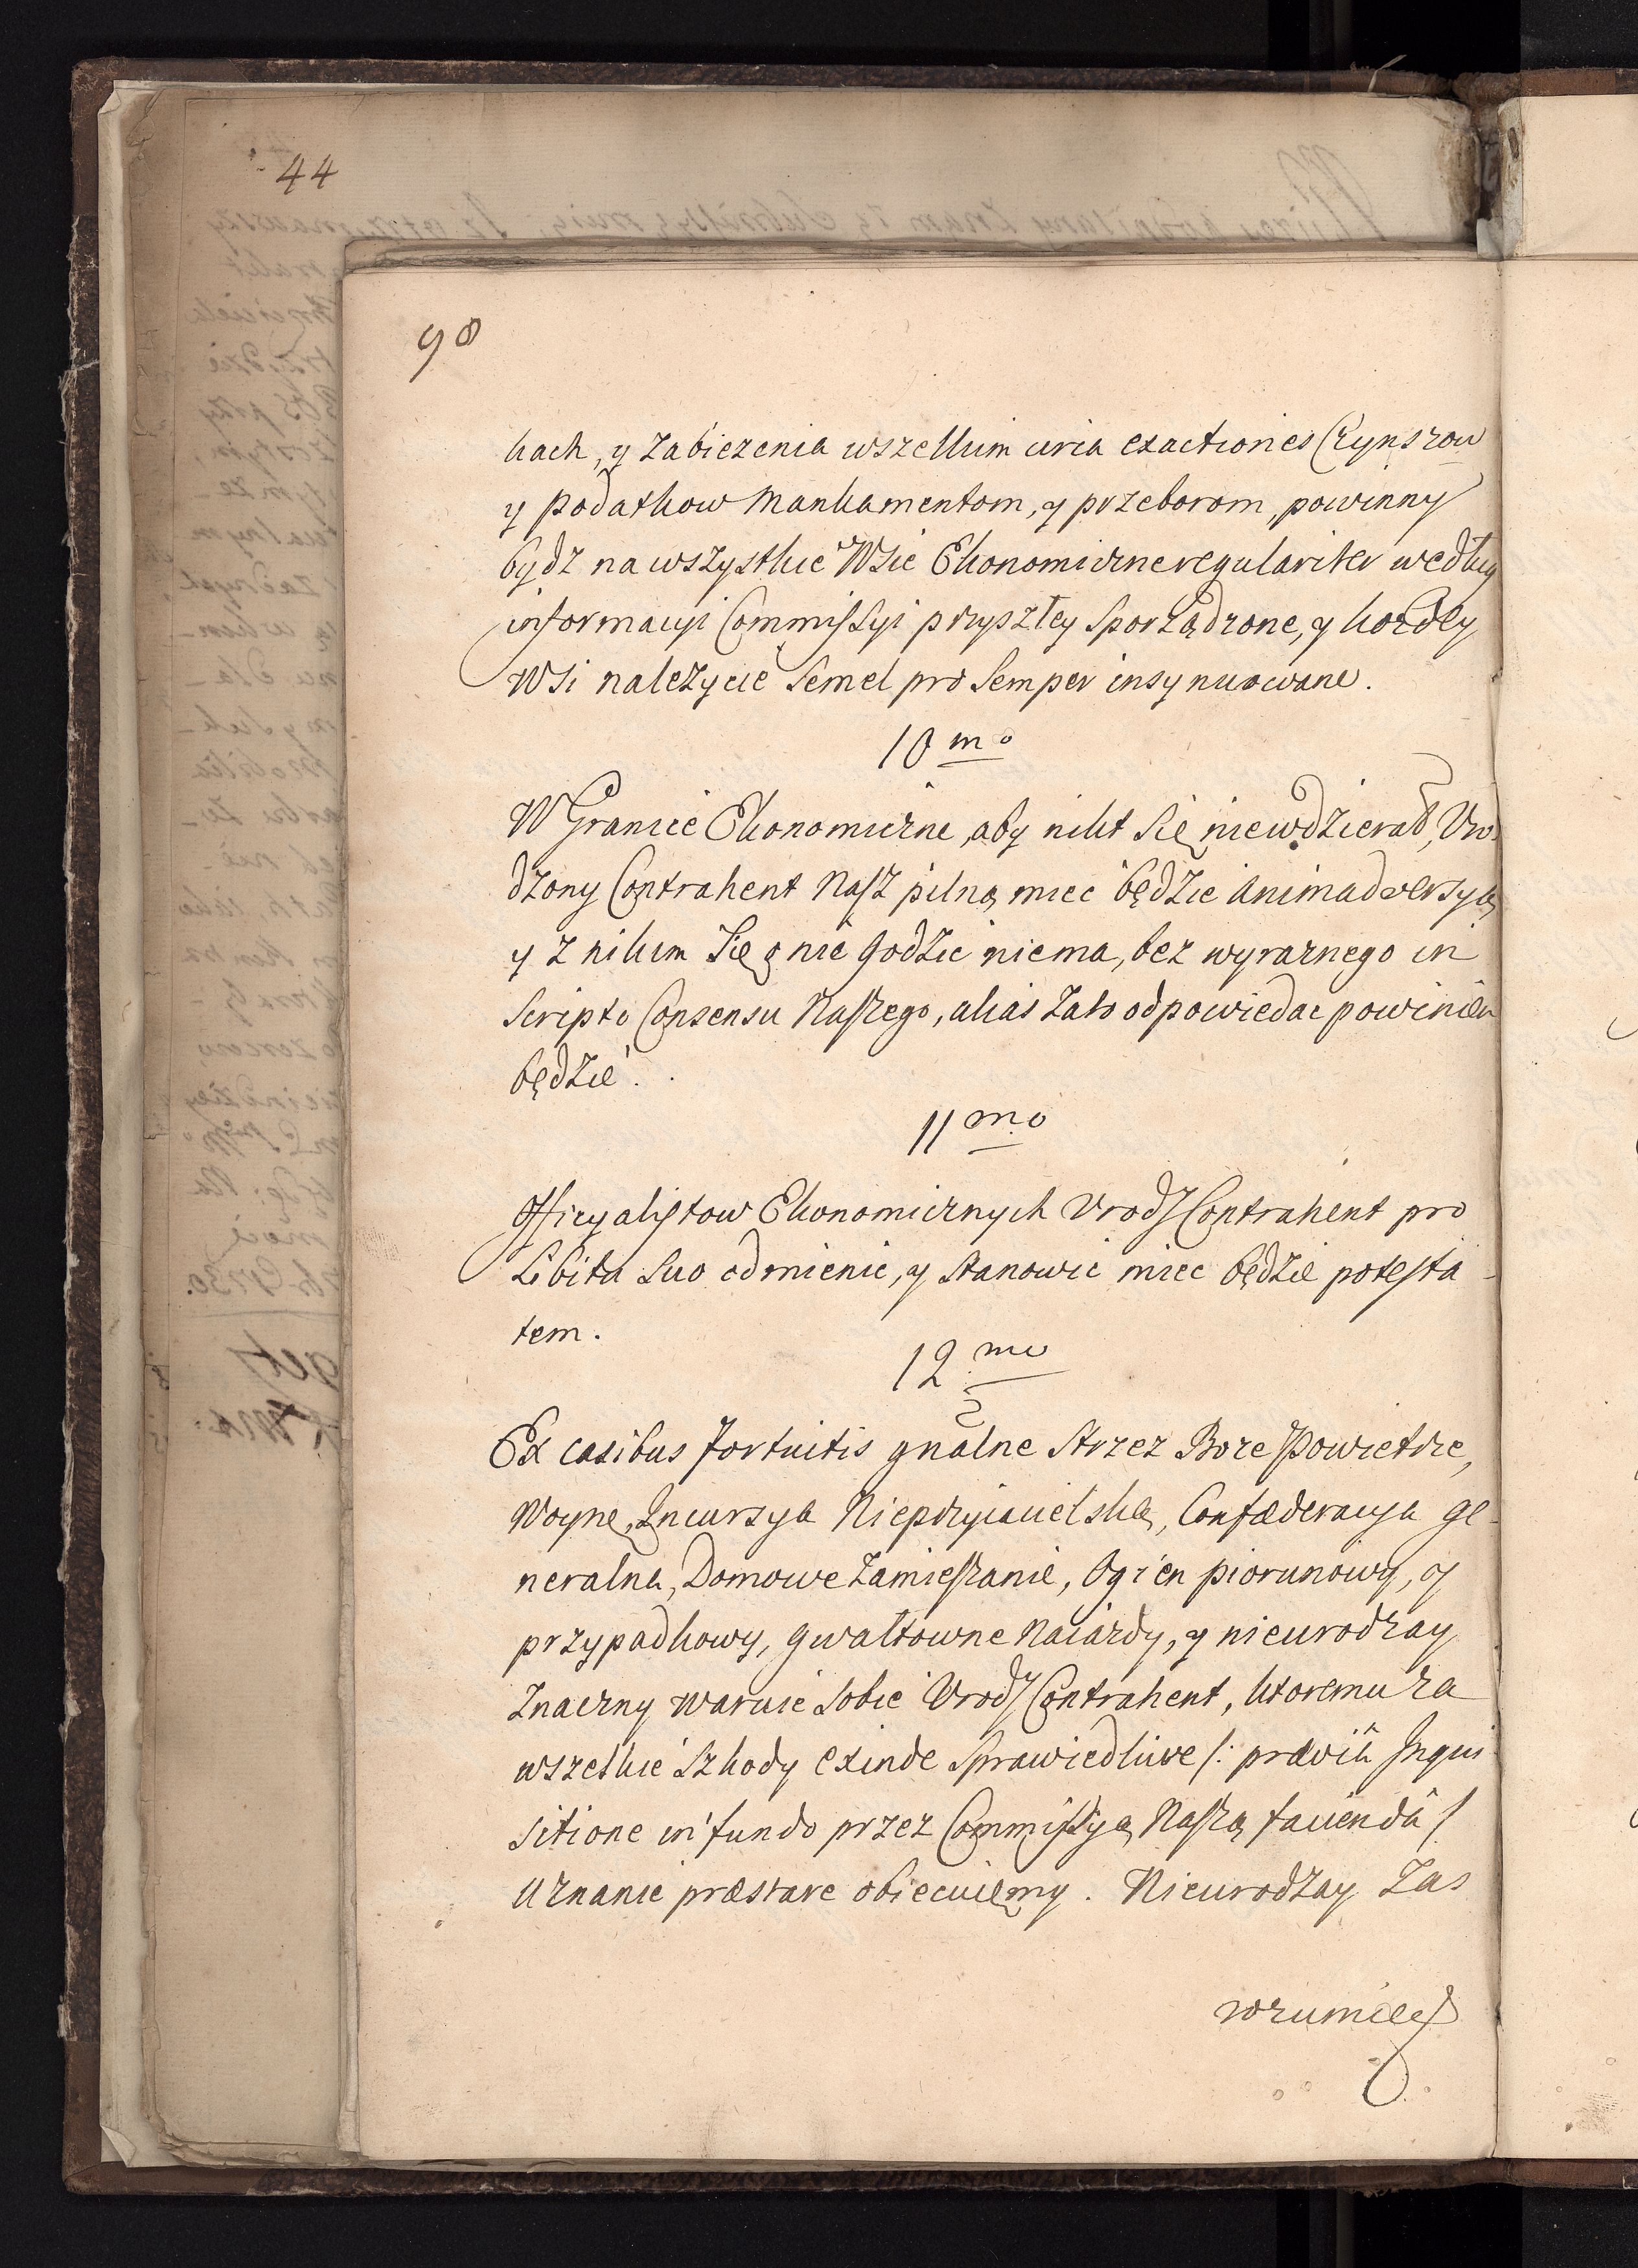 44
98
kach, y zabiezenia wszelkim circa exactiones Czynszow
y Podatkow Mankamentom, y przeborom, powinny
bydz na wszystkie Wsie Ekonomiczne regulariter według
informacyi Commissyi przyszłey sporządzone, y kozdey
Wsi należycie semel pro semper insynuowane.
10mo
W Granice Ekonomiczne, aby nikt się niewdzierał, Uro
dzony Contrahent Nasz pilną miec będzie animadwersyą
y z nikim się o nie godzic niema, bez wyraznego in
Scripto Consensu Naszego, alias za to odpowiedac powinien
będzie.
11mo
Officyalistow Ekonomicznych Urodz Contrahent pro
Libitu suo odmienic, y stanowic miec będzie potesta-
tem.
12mo
Ex casibus fortuitis gnalne strzez Boze Powietrze,
Woynę, Incursyą Nieprzyiacielską, Confæderacyą ge-
neralną, Domowe zamieszanie, Ogien piorunowy, y
przypadkowy, gwałtowne Naiazdy, y nieurodzay
znaczny waruie sobie Urodz Contrahent, ktoremu za
wszelkie szkody exinde sprawiedliwe /: præviâ Inqui
sitione in fundo przez Commissyą Naszą faciendâ /
uznanie præstare obiecuięmy. Nieurodzay zas
rozumiec